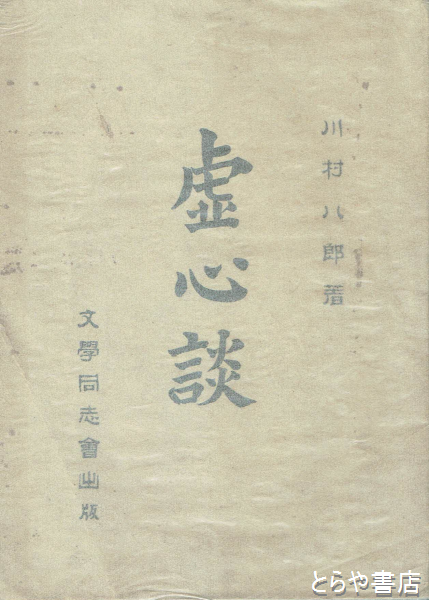 川村八郎著
虚心談
文學同志會出版
とらや書店